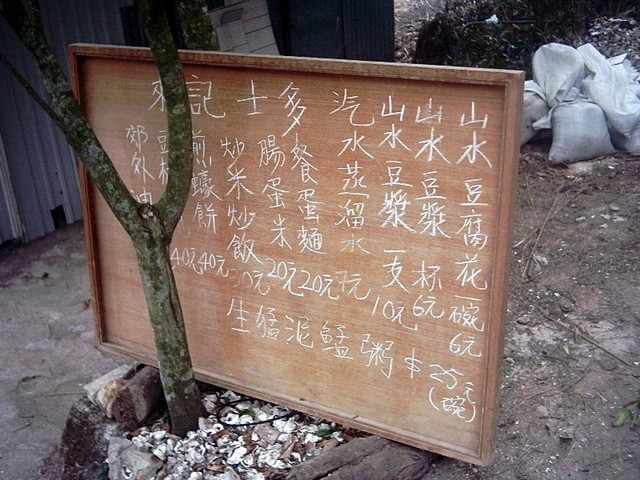 來記士多
山水豆腐花一碗6元
山水豆漿一杯6元
山水豆漿一支10元
汽水蒸溜水7元
餐蛋麵20元
腸蛋米20元
炒米炒飯30元
煎蠔餅40元
豆 40元
郊外油
生猛泥鯭粥$25元(碗)